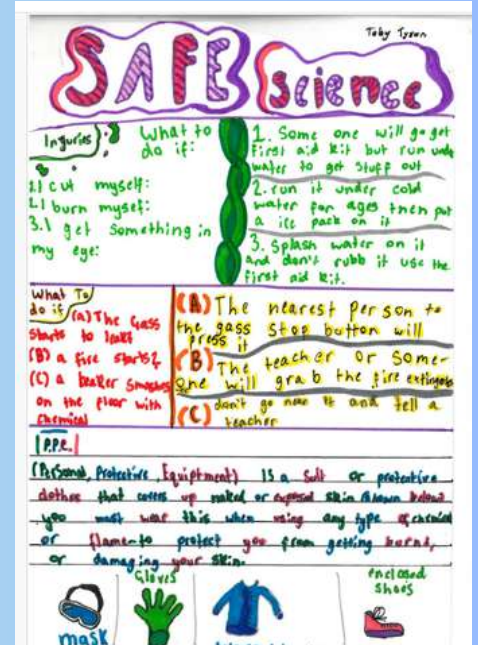 Toby Tyson
SAFE
Science
Injuries
What to
do if:
1.I cut myself:
2.I burn myself:
3.I get something in
my eye:
1. Some one will go get
first aid kit but run under
water to get stuff out
2. run it under cold
water for ages then put
a ice pack on it
3. Splash water on it
and don't rubb it use the
first aid kit.
What To
do if
(a) The Gass
starts to leak?
(B) a fire starts?
(C) a beaker smashes
on the floor with
chemical
(A) The nearest person to
the gass stop botton will
press it
(B) The teacher or some-
one will grab the fire extinguis
(C) don't go near it and tell a
teacher
P.P.E.
(Personal, Protective, Equiptment) IS a Suit or protective
clothes that covers up naked or exposed skin shown below
you must wear this when using any type of chemical
or flame to protect you from getting burnt,
or damaging your skin.
mask
Gloves
enclosed
shoes